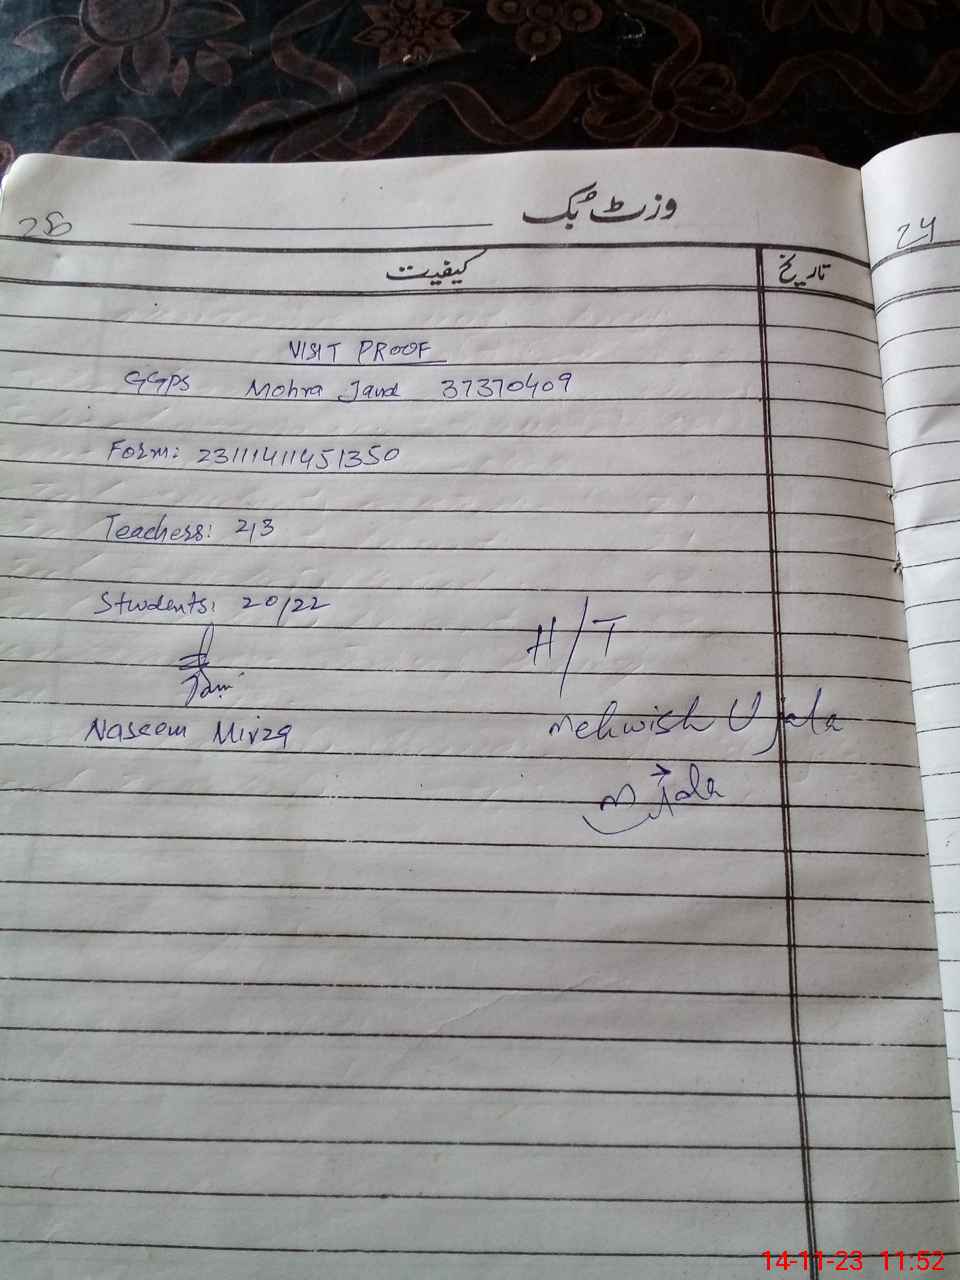 وزٹ بک
24
کیفیت
تاریخ
VISIT PROOF
GGPS Mohra Jand 37370409
Form: 23111411451350
Teachers: 2/3
Students: 20/22
H/T
Naseem Mirza
Mehwish Ujala
14-11-23 11:52